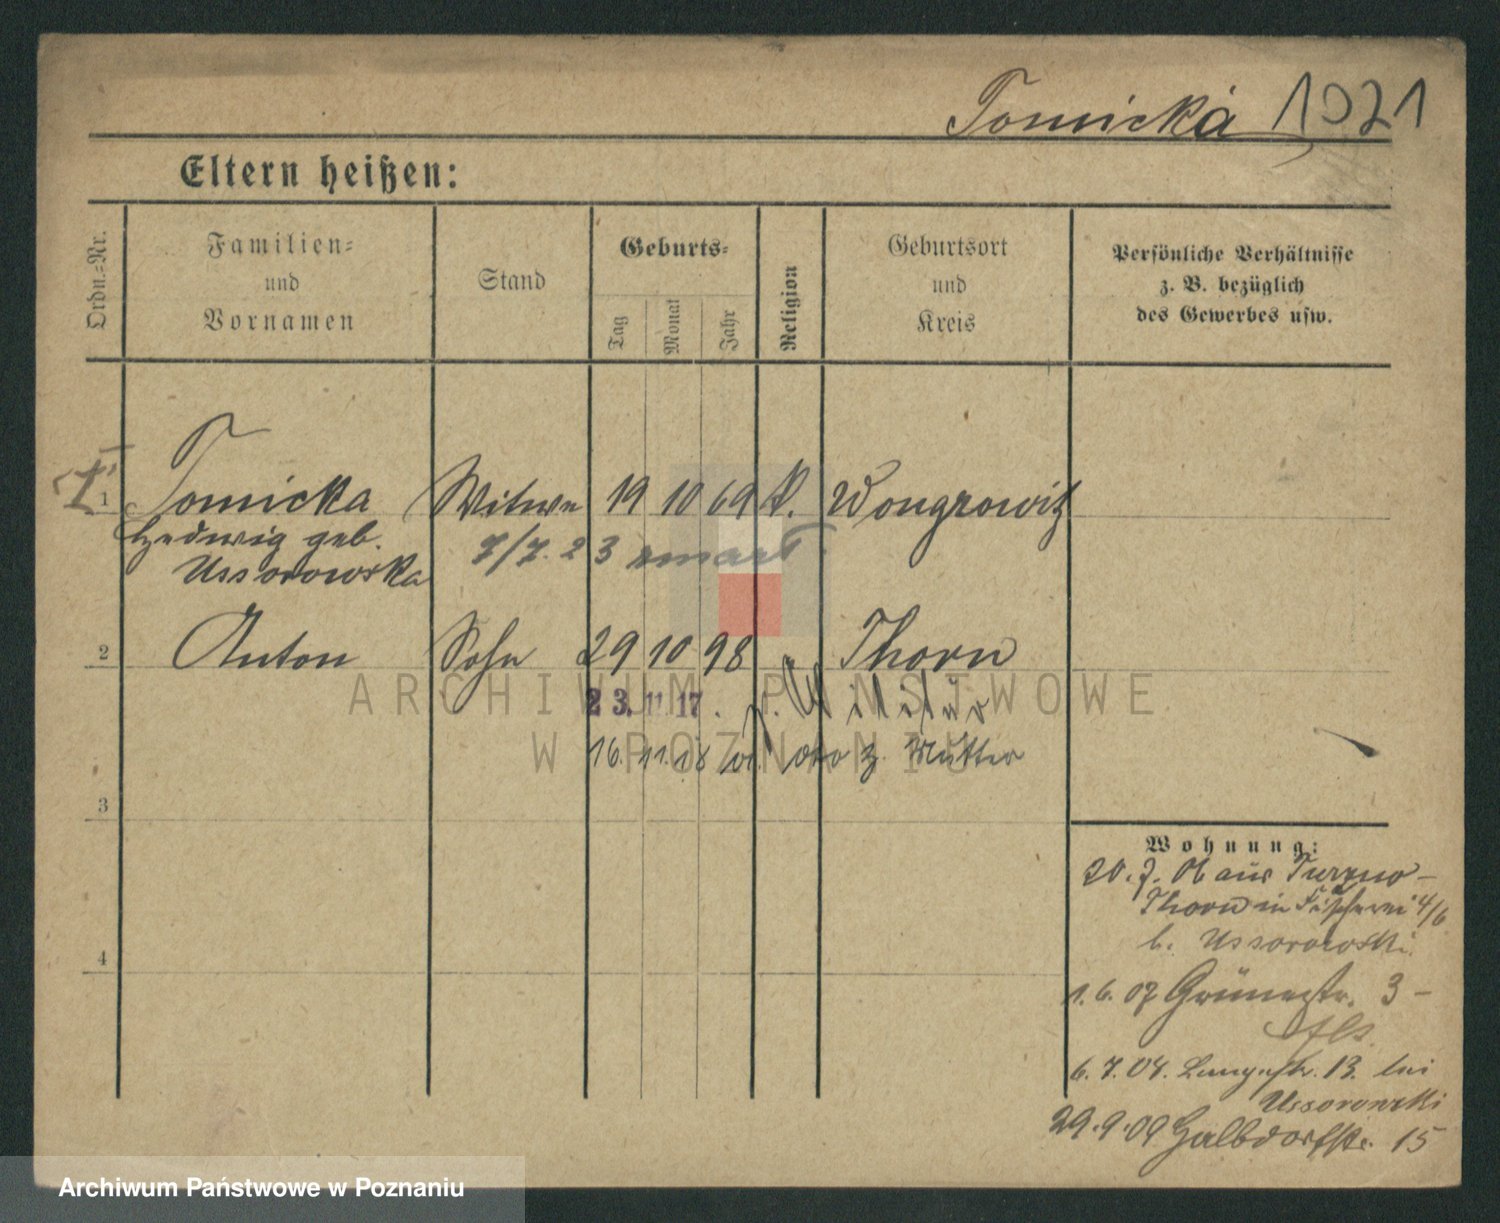 Tomicka 1921
Eltern heißen:
Ordn.=Nr.
Familien=
und
Vornamen
Stand
Geburts=
Tag
Monat
Jahr
Religion
Geburtsort
und
Kreis
Persönliche Verhältnisse
z. B. bezüglich
des Gewerbes usw.
1 Tomicka Witwe 19 10 69 k. Wongrowitz
Hedwig geb.
Ussorowska
7/7. 23 zmarł
2 Anton Sohn 29 10 98 Thorn
23. 11. 17. z. Militär
16. 11. 18 z. Mutter
ARCHIWUM PAŃSTWOWE
W POZNANIU
3
4
Wohnung:
20. 7. 06 aus Turzno-
Thorn in Fischerei 4/6
b. Ussorowski
1. 6. 07 Grünestr. 3 -
6. 7. 08. Langestr. 13. bei
Ussorowski
29. 9. 09 Halbdorfstr. 15
Archiwum Państwowe w Poznaniu